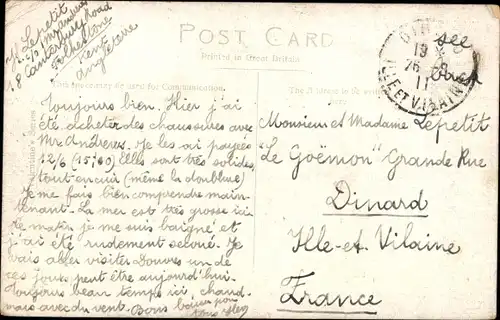 H. Lepetit
c/o Mr Andrews
18 Canterbury Road
Folkestone
Kent
Angleterre
POST CARD
Printed in Great Britain
This space may be used for Communication.
The Address to be written here.
see
back
DINARD
19
26-8
11
ILLE-ET-VILAINE
Toujours bien. Hier j'ai
été acheter des chaussures avec
Mr Andrews. Je les ai payées
12/6 (15,60) Elles sont très solides,
tout en cuir (même la doublure)
Je me fais bien comprendre main-
tenant. La mer est très grosse ici
ce matin je me suis baigné et
j'ai été rudement secoué. Je
vais aller visiter Douvres un de
ces jours peut être aujourd'hui.
Toujours beau temps ici, chaud,
mais avec du vent. Bons baisers pour
tous
Monsieur et Madame Lepetit
"Le Goëmon" Grande Rue
Dinard
Ille-et-Vilaine
France